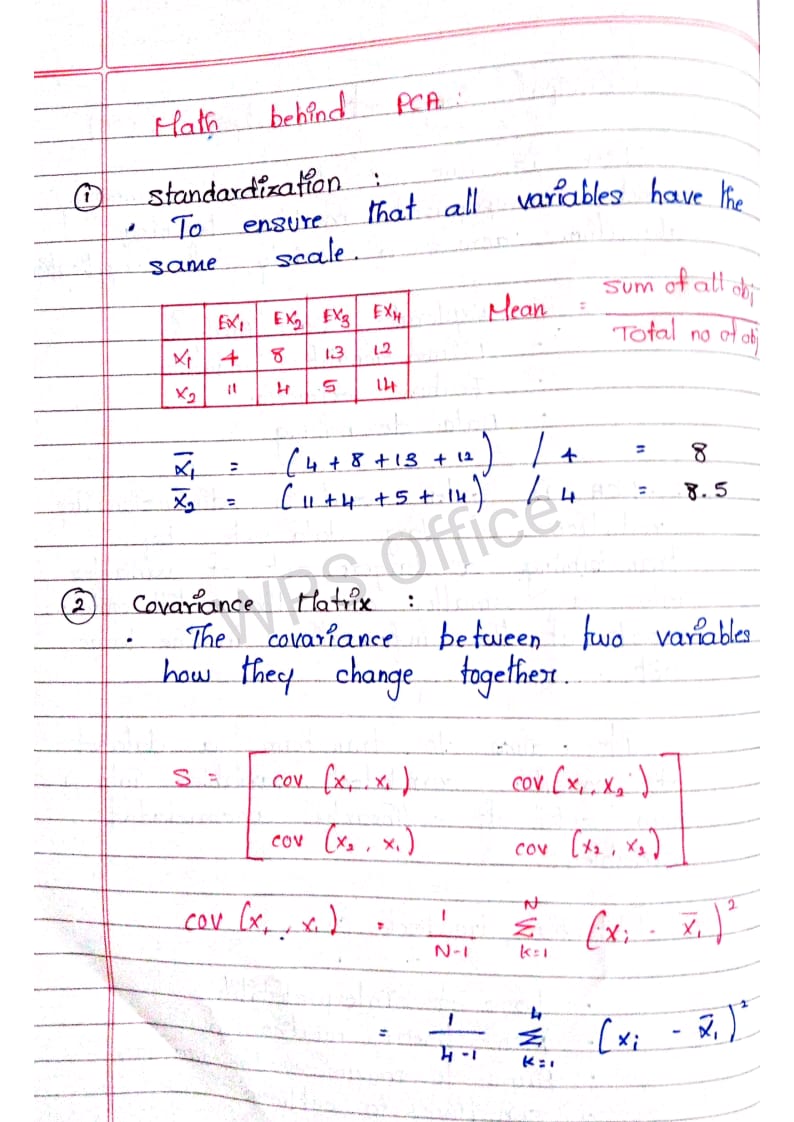 Math behind PCA :
① Standardization :
• To ensure that all variables have the
same scale.
EX₁ EX₂ EX₃ EX₄
X₁ 4 8 13 12
X₂ 11 4 5 14
Mean = sum of all obj / Total no of obj
x̄₁ = (4 + 8 + 13 + 12) / 4 = 8
x̄₂ = (11 + 4 + 5 + 14) / 4 = 8.5
② Covariance Matrix :
• The covariance between two variables
how they change together.
S = [ cov (x₁, x₁) cov (x₁, x₂)
cov (x₂, x₁) cov (x₂, x₂) ]
cov (x₁, x₁) = 1/(N-1) Σ_{k=1}^{N} (xᵢ - x̄₁)²
= 1/(4-1) Σ_{k=1}^{4} (xᵢ - x̄₁)²
WPS Office